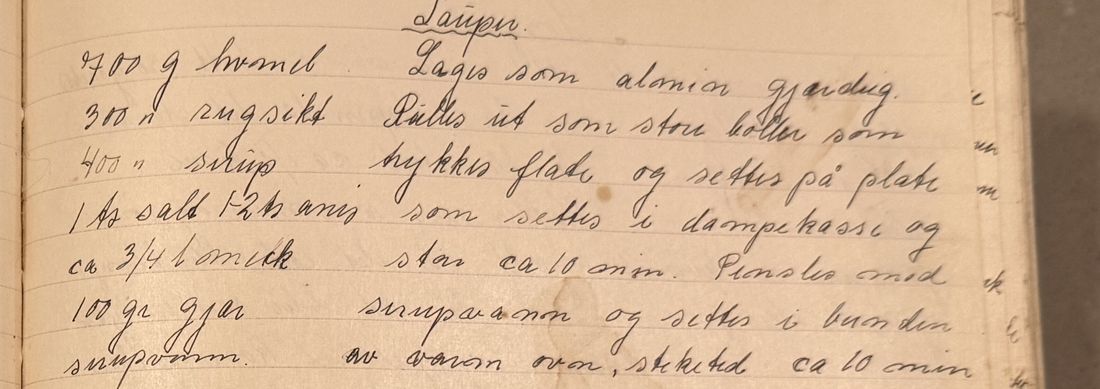 Taúper.
700 g hvmel Lages som almin gjærdeig.
300 " rugsikt Rulles út som store boller som
400 " sirúp trykkes flate og settes på plate
1 ts salt 1-2 ts anis som settes i dampekasse og
ca 3/4 l melk står ca 10 min. Pensles med
100 gr gjær sirupvann og settes i bunden
sirupvann. av varm ovn, steketid ca 10 min